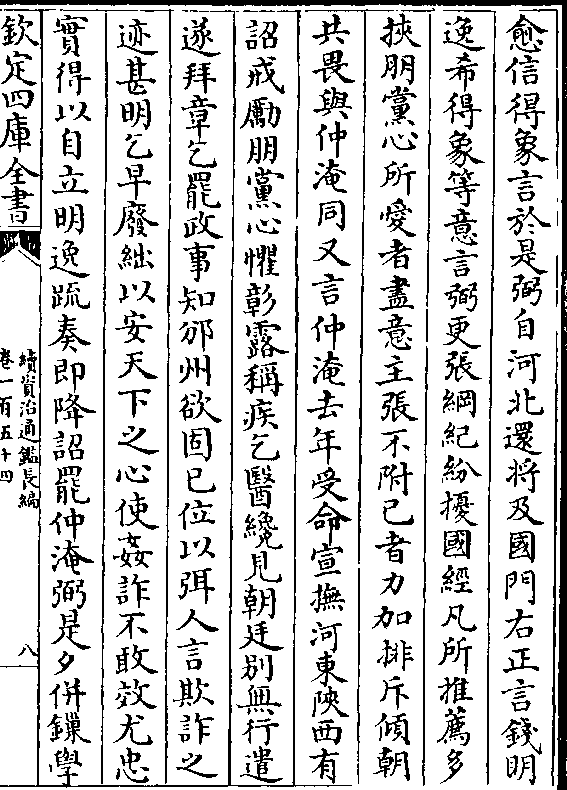 愈信得象言於是弼自河北還將及國門右正言錢明
逸希得象等意言弼更張綱紀紛擾國經凡所推薦多
挾朋黨心所愛者盡意主張不附已者力加排斥傾朝
共畏與仲淹同又言仲淹去年受命宣撫河東陝西有
詔戒勵朋黨心懼彰露稱疾乞醫纔見朝廷别無行遣
遂拜章乞罷政事知邠州欲固已位以弭人言欺詐之
迹甚明乞早廢絀以安天下之心使姦詐不敢效尤忠
實得以自立明逸疏奏即降詔罷仲淹弼是夕併鏁學
欽定四庫全書
續資治通鑑長編
卷一百五十四
八